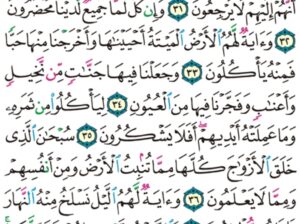 أَنَّهُمْ إِلَيْهِمْ لَا يَرْجِعُونَ ٣١ وَإِن كُلٌّ لَّمَّا جَمِيعٌ لَّدَيْنَا مُحْضَرُونَ
٣٢ وَءَايَةٌ لَّهُمُ ٱلْأَرْضُ ٱلْمَيْتَةُ أَحْيَيْنَٰهَا وَأَخْرَجْنَا مِنْهَا حَبًّا
فَمِنْهُ يَأْكُلُونَ ٣٣ وَجَعَلْنَا فِيهَا جَنَّٰتٍ مِّن نَّخِيلٍ
وَأَعْنَٰبٍ وَفَجَّرْنَا فِيهَا مِنَ ٱلْعُيُونِ ٣٤ لِيَأْكُلُوا۟ مِن ثَمَرِهِۦ
وَمَا عَمِلَتْهُ أَيْدِيهِمْ أَفَلَا يَشْكُرُونَ ٣٥ سُبْحَٰنَ ٱلَّذِى
خَلَقَ ٱلْأَزْوَٰجَ كُلَّهَا مِمَّا تُنۢبِتُ ٱلْأَرْضُ وَمِنْ أَنفُسِهِمْ
وَمِمَّا لَا يَعْلَمُونَ ٣٦ وَءَايَةٌ لَّهُمُ ٱلَّيْلُ نَسْلَخُ مِنْهُ ٱلنَّهَارَ